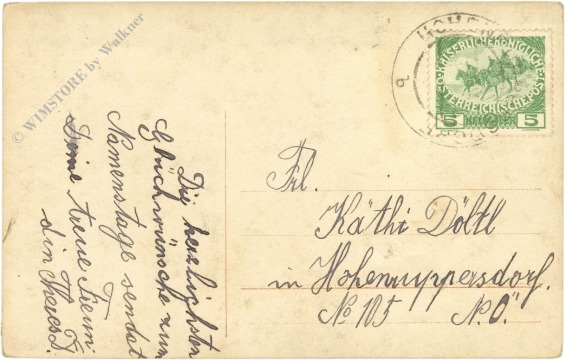 © WIMSTORE by Walkner
Die herzlichsten
Glückwünsche zum
Namenstage sendet
Deine treue Freun
din Theres T.
KAISERLICHEKÖNIGLICHE
ÖSTERREICHISCHEPOST
5 HELLER 5
Frl.
Käthi Döltl
in Hohenruppersdorf.
No 105 N.Ö.